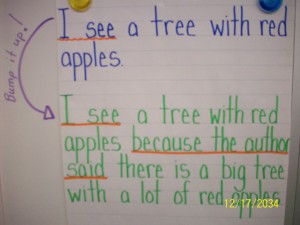 Bump it up!
I see a tree with red
apples.
I see a tree with red
apples because the author
said there is a big tree
with a lot of red apples
12/17/2034